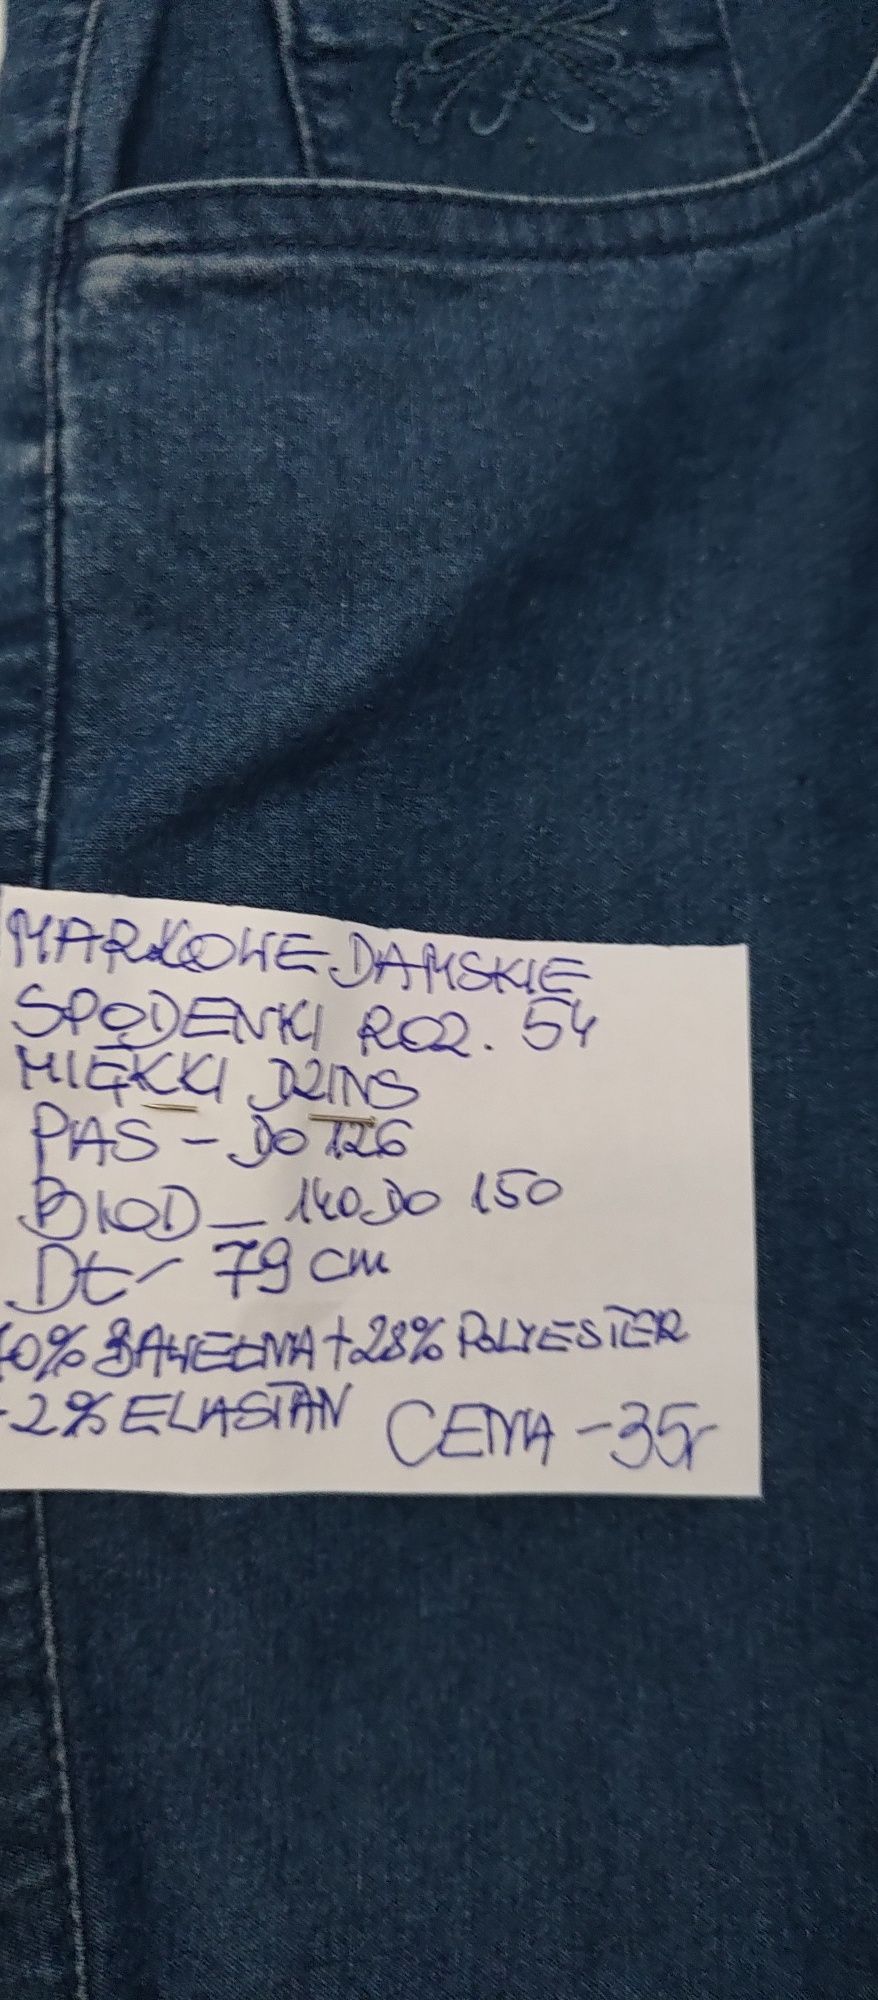 MARKOWE DAMSKIE
SPODENKI ROZ. 54
MIĘKKI DŻINS
PAS - DO 126
BIOD - 140 DO 150
DŁ - 79 cm
70% BAWEŁNA + 28% POLYESTER
-2% ELASTAN
CENA - 35,-